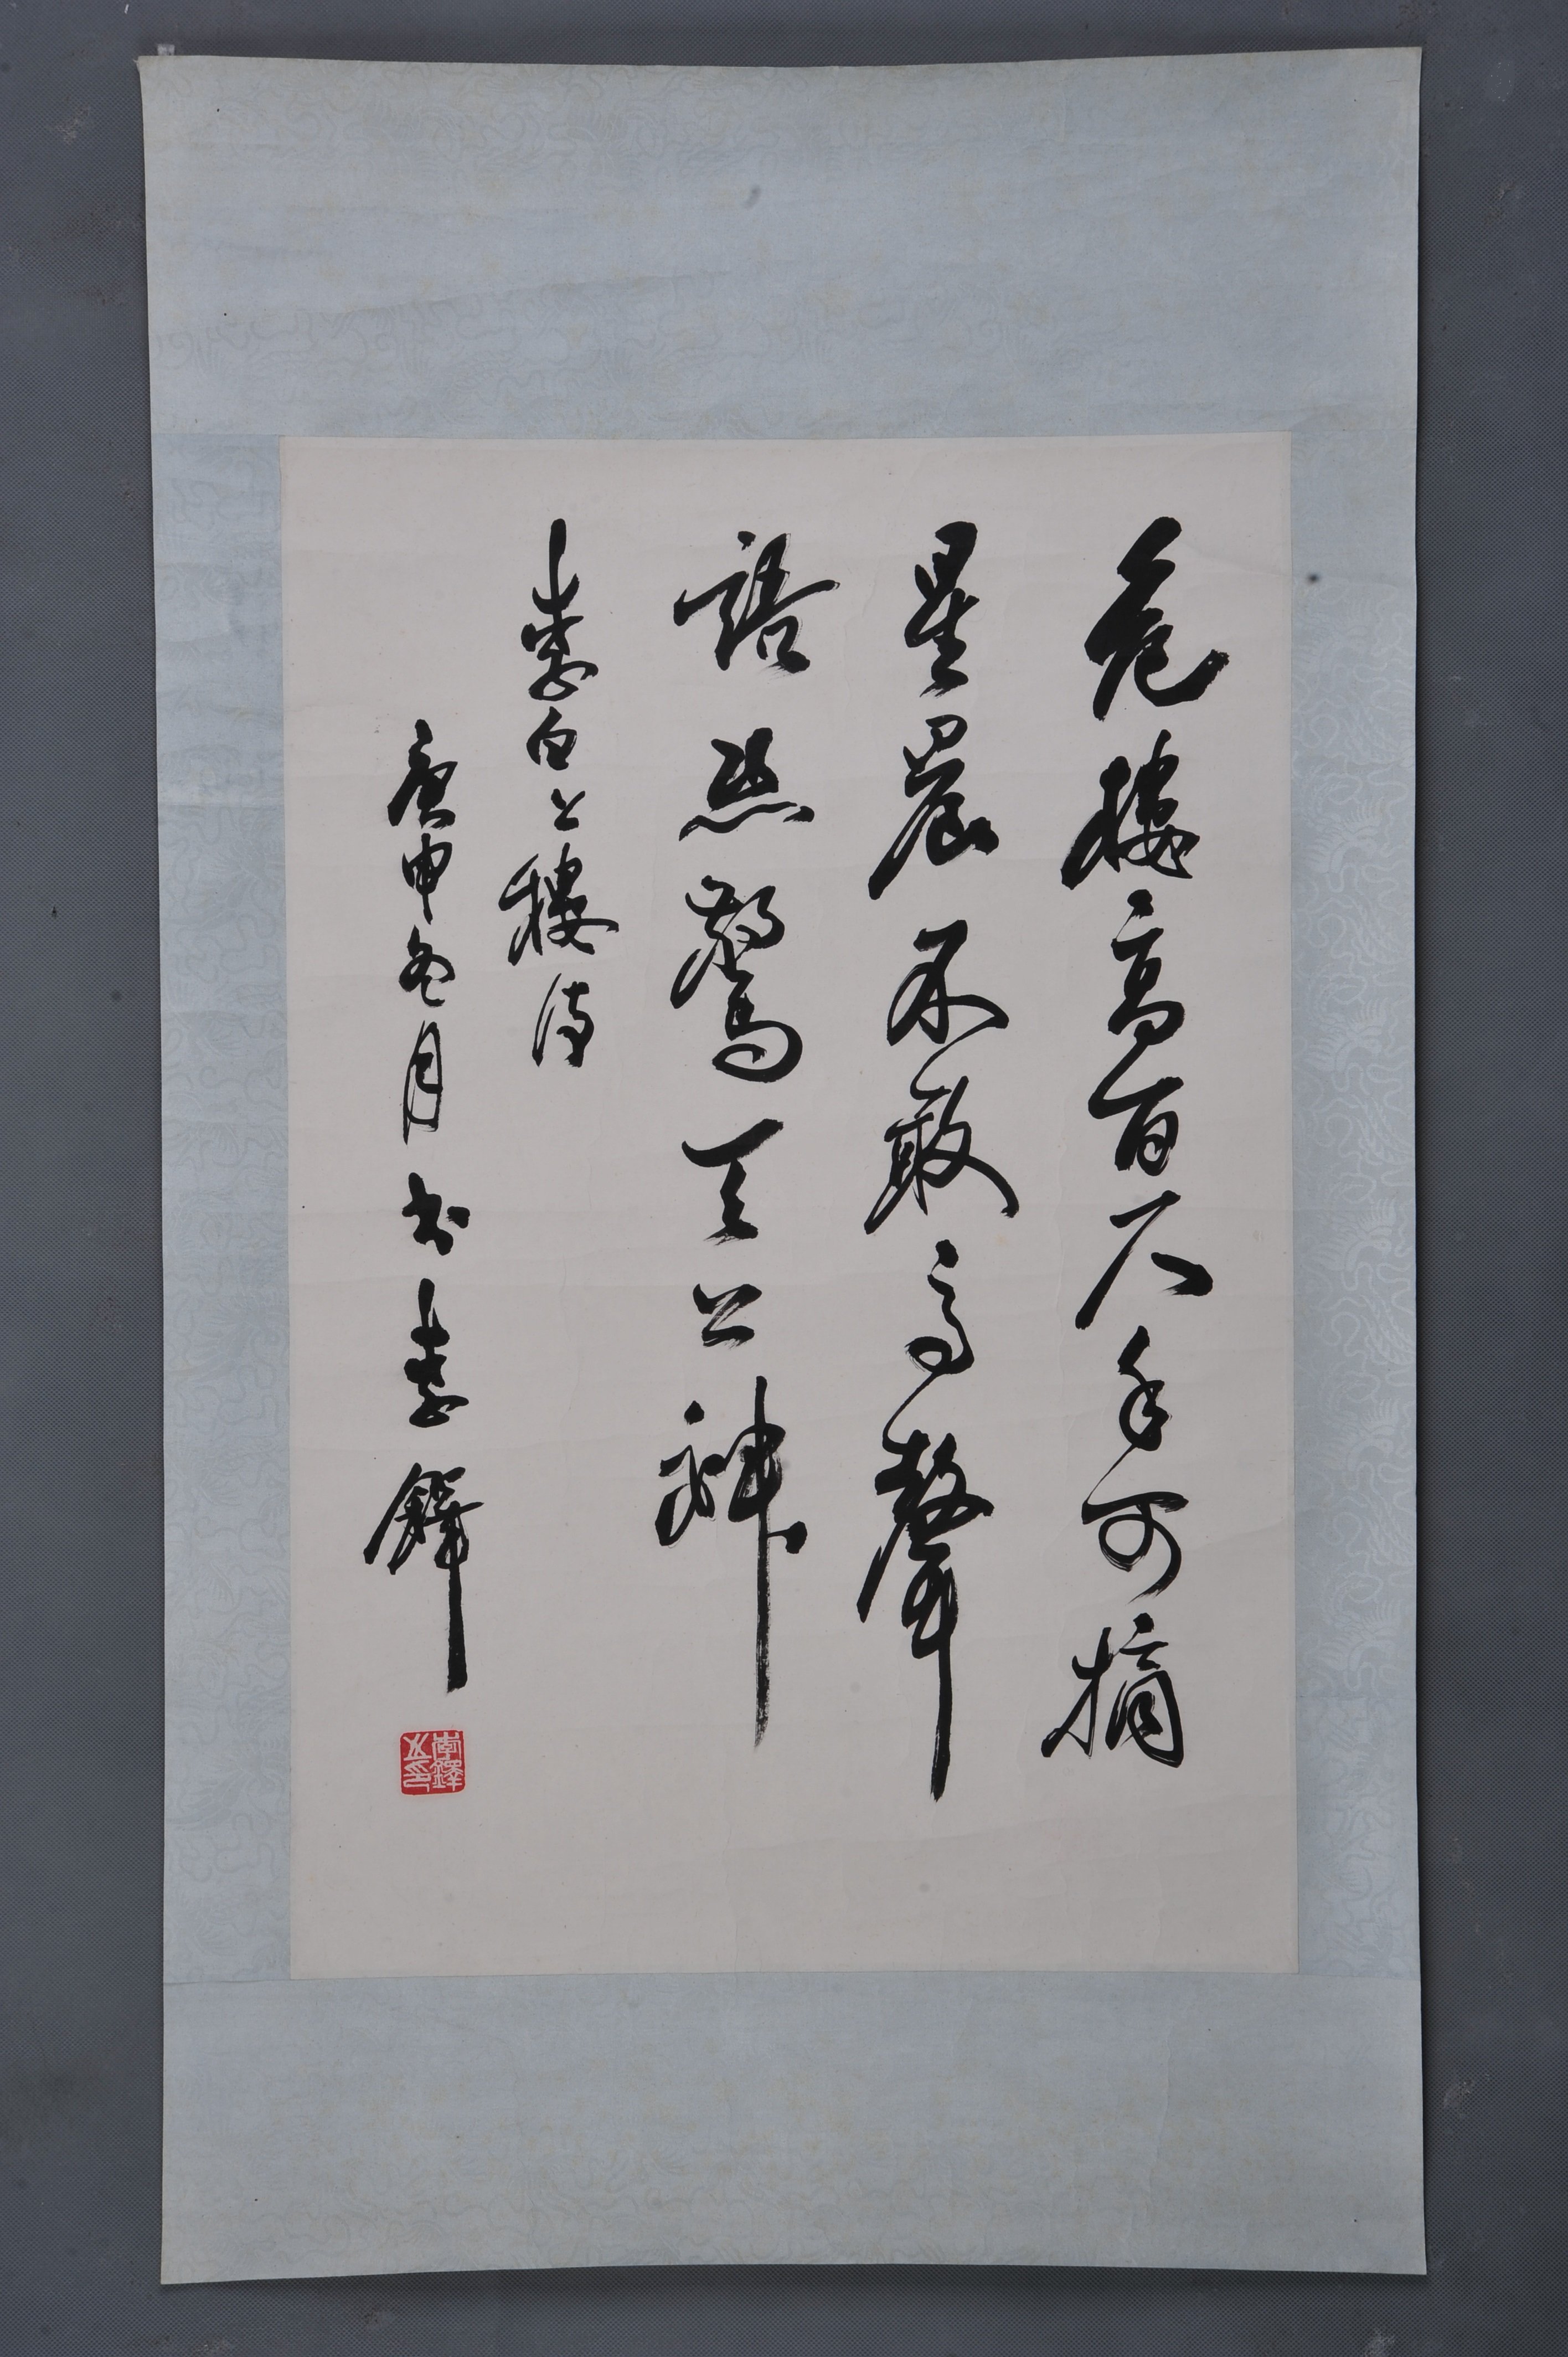 危樓高百尺手可摘
星晨不敢高聲
語恐驚天上神
李白上樓詩
庚申冬月书李鐸
李鐸之印